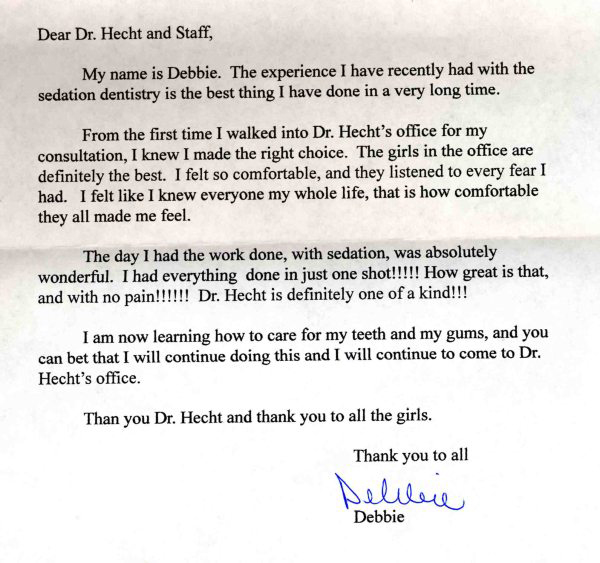 Dear Dr. Hecht and Staff,
My name is Debbie.  The experience I have recently had with the
sedation dentistry is the best thing I have done in a very long time.
From the first time I walked into Dr. Hecht's office for my
consultation, I knew I made the right choice.  The girls in the office are
definitely the best.  I felt so comfortable, and they listened to every fear I
had.   I felt like I knew everyone my whole life, that is how comfortable
they all made me feel.
The day I had the work done, with sedation, was absolutely
wonderful.  I had everything  done in just one shot!!!!! How great is that,
and with no pain!!!!!!  Dr. Hecht is definitely one of a kind!!!
I am now learning how to care for my teeth and my gums, and you
can bet that I will continue doing this and I will continue to come to Dr.
Hecht's office.
Than you Dr. Hecht and thank you to all the girls.
Thank you to all
Debbie
Debbie